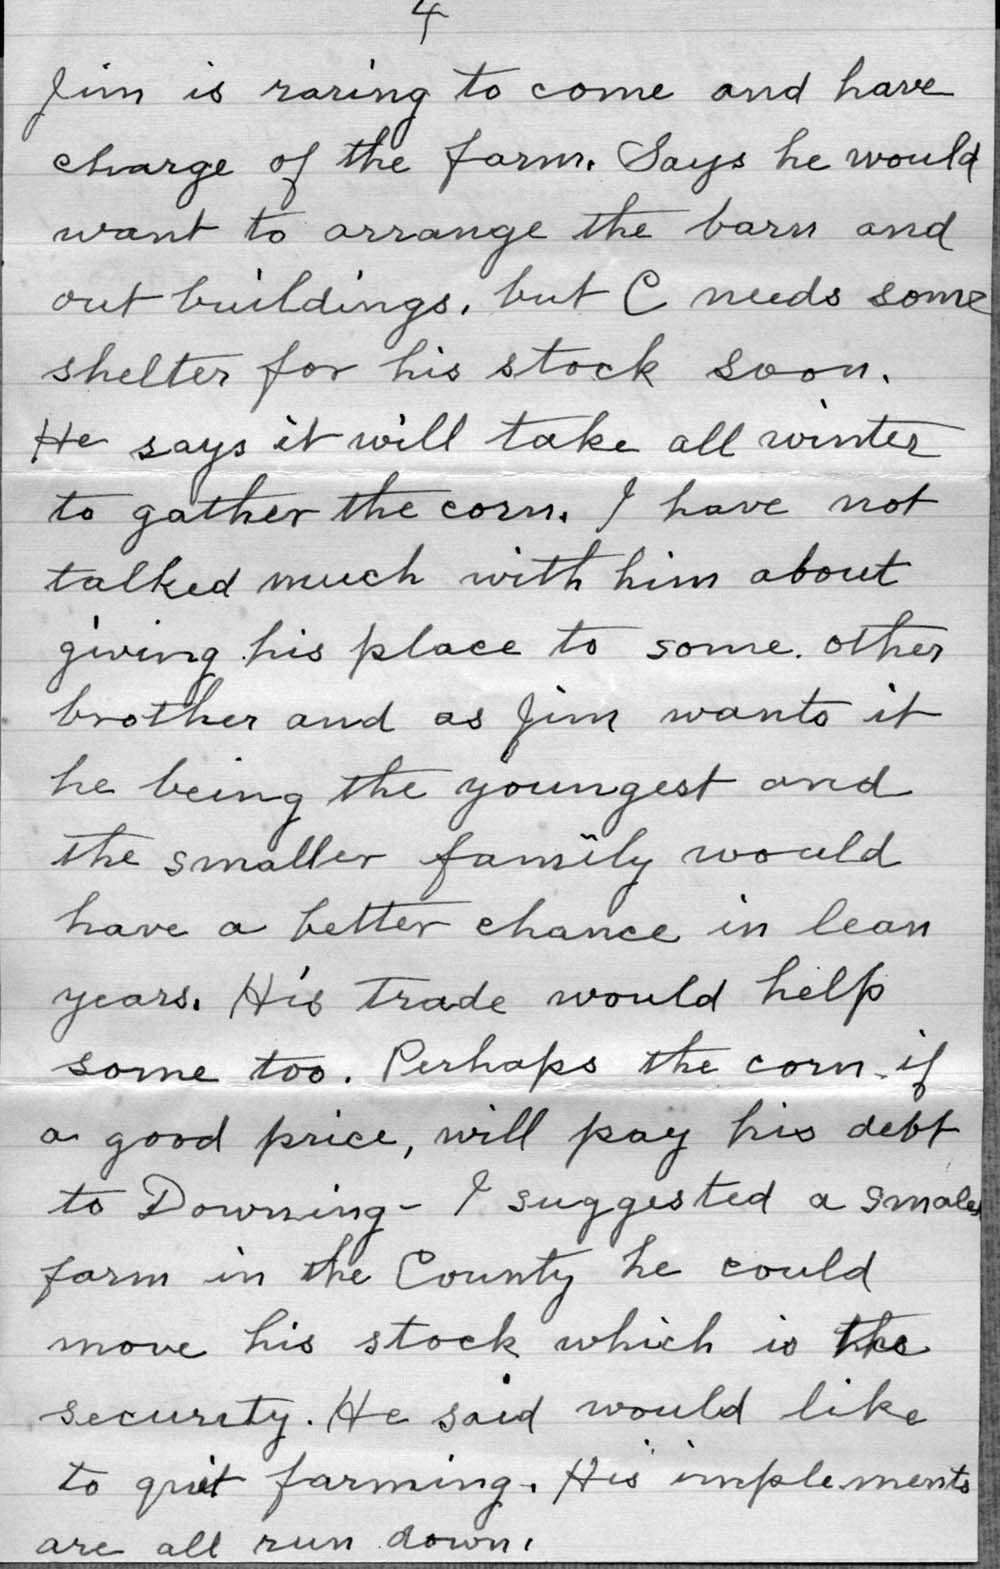 4
Jim is raring to come and have
charge of the farm. Says he would
want to arrange the barn and
out buildings, but C needs some
shelter for his stock soon.
He says it will take all winter
to gather the corn. I have not
talked much with him about
giving his place to some. other
brother and as Jim wants it
he being the youngest and
the smaller family would
have a better chance in lean
years. His trade would help
some too. Perhaps the corn - if
a good price, will pay his debt
to Downing - I suggested a smaler
farm in the County he could
move his stock which is the
security. He said would like
to quit farming. His implements
are all run down.